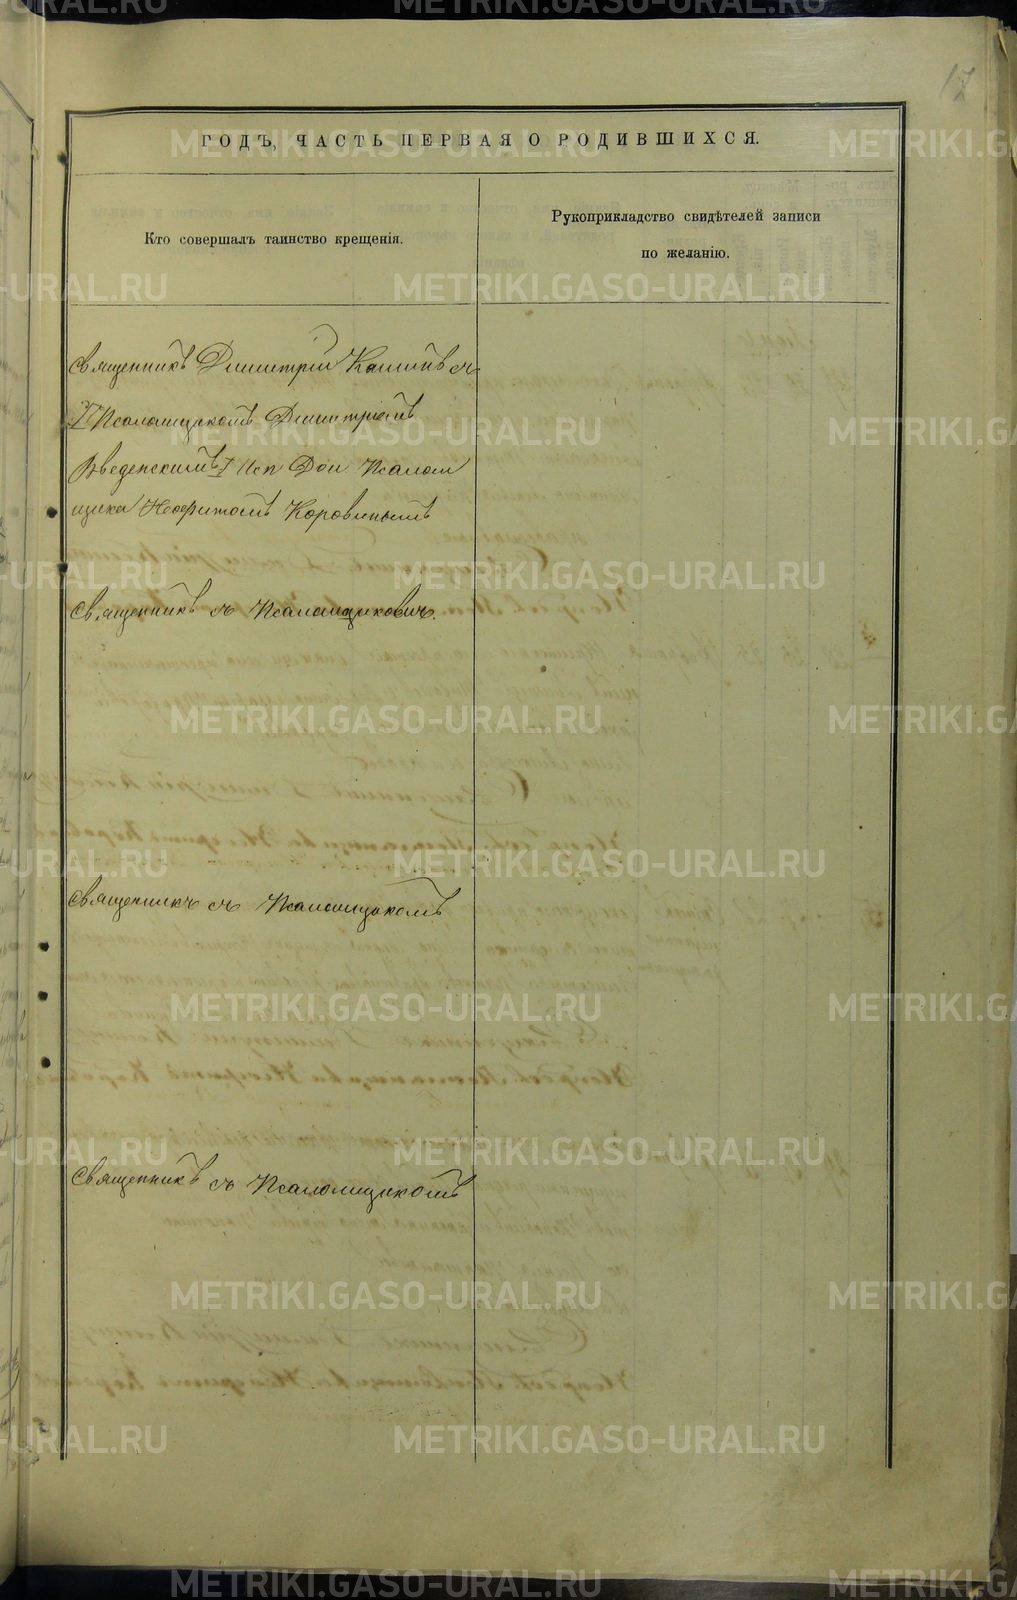 17
ГОДЪ, ЧАСТЬ ПЕРВАЯ О РОДИВШИХСЯ.
Кто совершалъ таинство крещенія.
Рукоприкладство свидѣтелей записи
по желанію.
Священникъ Димитрій съ
Псаломщикомъ Димитріемъ
Введенскимъ Исп Дол Псалом
щика Неофитомъ Коровинымъ
Священникъ съ
Священникъ съ Псаломщикомъ
Священникъ съ Псаломщикомъ
METRIKI.GASO-URAL.RU